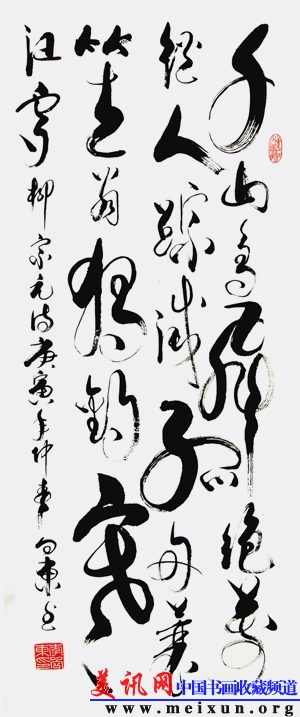 千山鸟飛絶萬
徑人踪滅孤舟蓑
笠翁獨釣寒
江雪 柳宗元诗庚寅年仲春向東书
美讯网 中国书画收藏频道
www.meixun.org